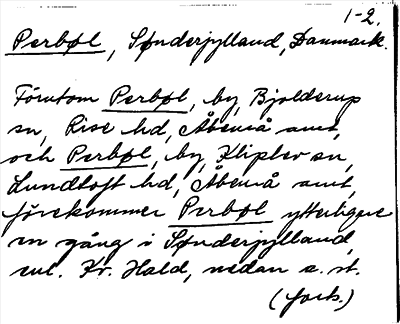 1-2.
Perbøl, Sønderjylland, Danmark.
Förutom Perbøl, by, Bjolderup
sn, Rise hd, Åbenrå amt,
och Perbøl, by, Kliplev sn,
Lundtoft hd, Åbenrå amt,
förekommer Perbøl ytterligare
en gång i Sønderjylland,
enl. Kr. Hald, nedan a. st.
(forts.)